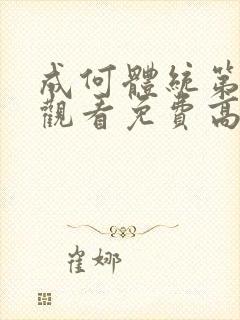 成何體統第
觀看免費高
崔娜